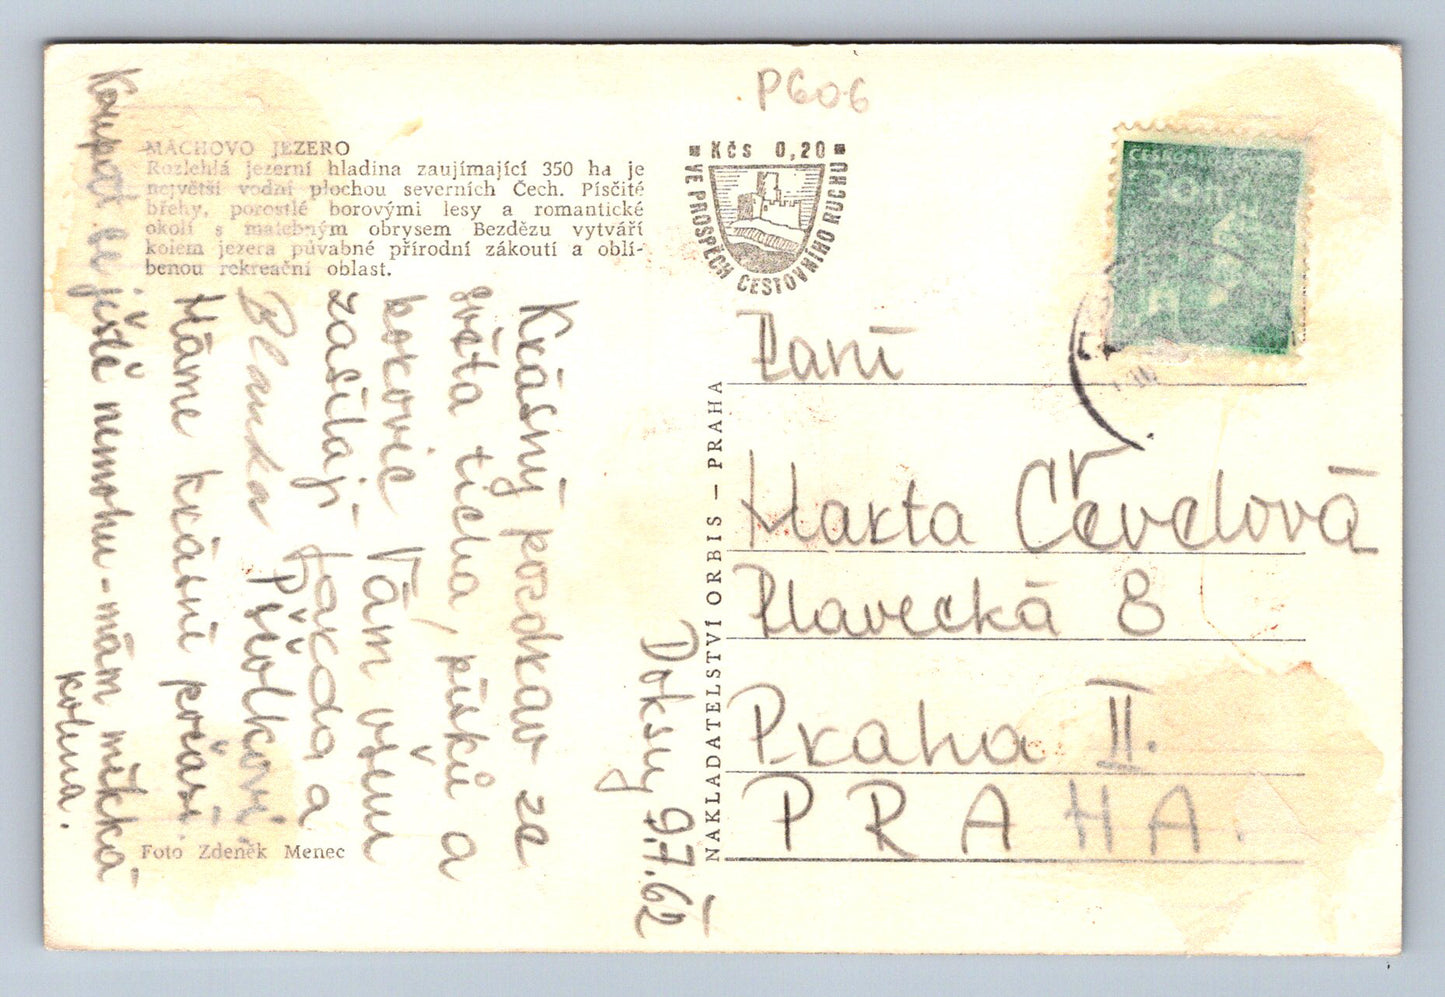 P606
MÁCHOVO JEZERO
Rozlehlá jezerní hladina zaujímající 350 ha je
největší vodní plochou severních Čech. Písčité
břehy, porostlé borovými lesy a romantické
okolí s malebným obrysem Bezdězu vytváří
kolem jezera půvabné přírodní zákoutí a oblí-
benou rekreační oblast.
■ Kčs 0,20 ■
VE PROSPĚCH CESTOVNÍHO RUCHU
Doksy 9.7.62
Krásný pozdrav ze
světa ticha, písků a
borovic Vám všem
zasílají Jarda a
Blanka Přívlkovi.
Máme krásné počasí.
Koupat se ještě nemohu - mám měkká
kolena.
Foto Zdeněk Menec
NAKLADATELSTVÍ ORBIS – PRAHA
Paní
Marta Červelová
Plavecká 8
Praha II.
PRAHA.